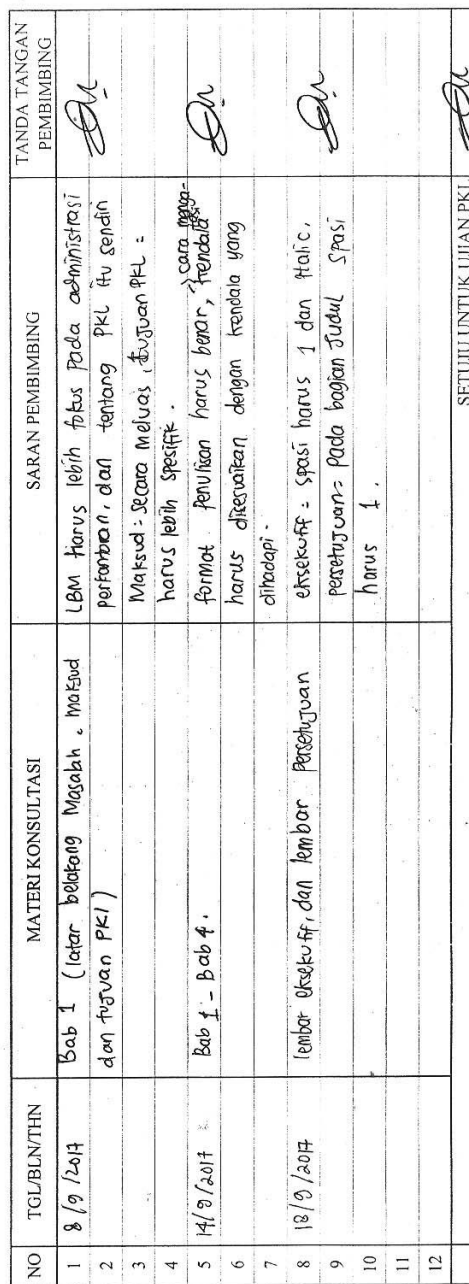 NO TGL/BLN/THN MATERI KONSULTASI SARAN PEMBIMBING TANDA TANGAN PEMBIMBING
1 8/9/2017 Bab 1 (latar belakang Masalah, maksud LBM harus lebih fokus pada administrasi
2 dan tujuan PKL) perkantoran, dan tentang PKL itu sendiri
3 Maksud = secara meluas, tujuan PKL =
4 harus lebih spesifik.
5 14/9/2017 Bab 1 - Bab 4. format penulisan harus benar, kendala cara menga-
6 harus disesuaikan dengan kendala yang
7 dihadapi.
8 18/9/2017 lembar eksekutif, dan lembar persetujuan eksekutif = spasi harus 1 dan italic,
9 persetujuan = pada bagian judul spasi
10 harus 1.
11
12
SETUJU UNTUK UJIAN PKL